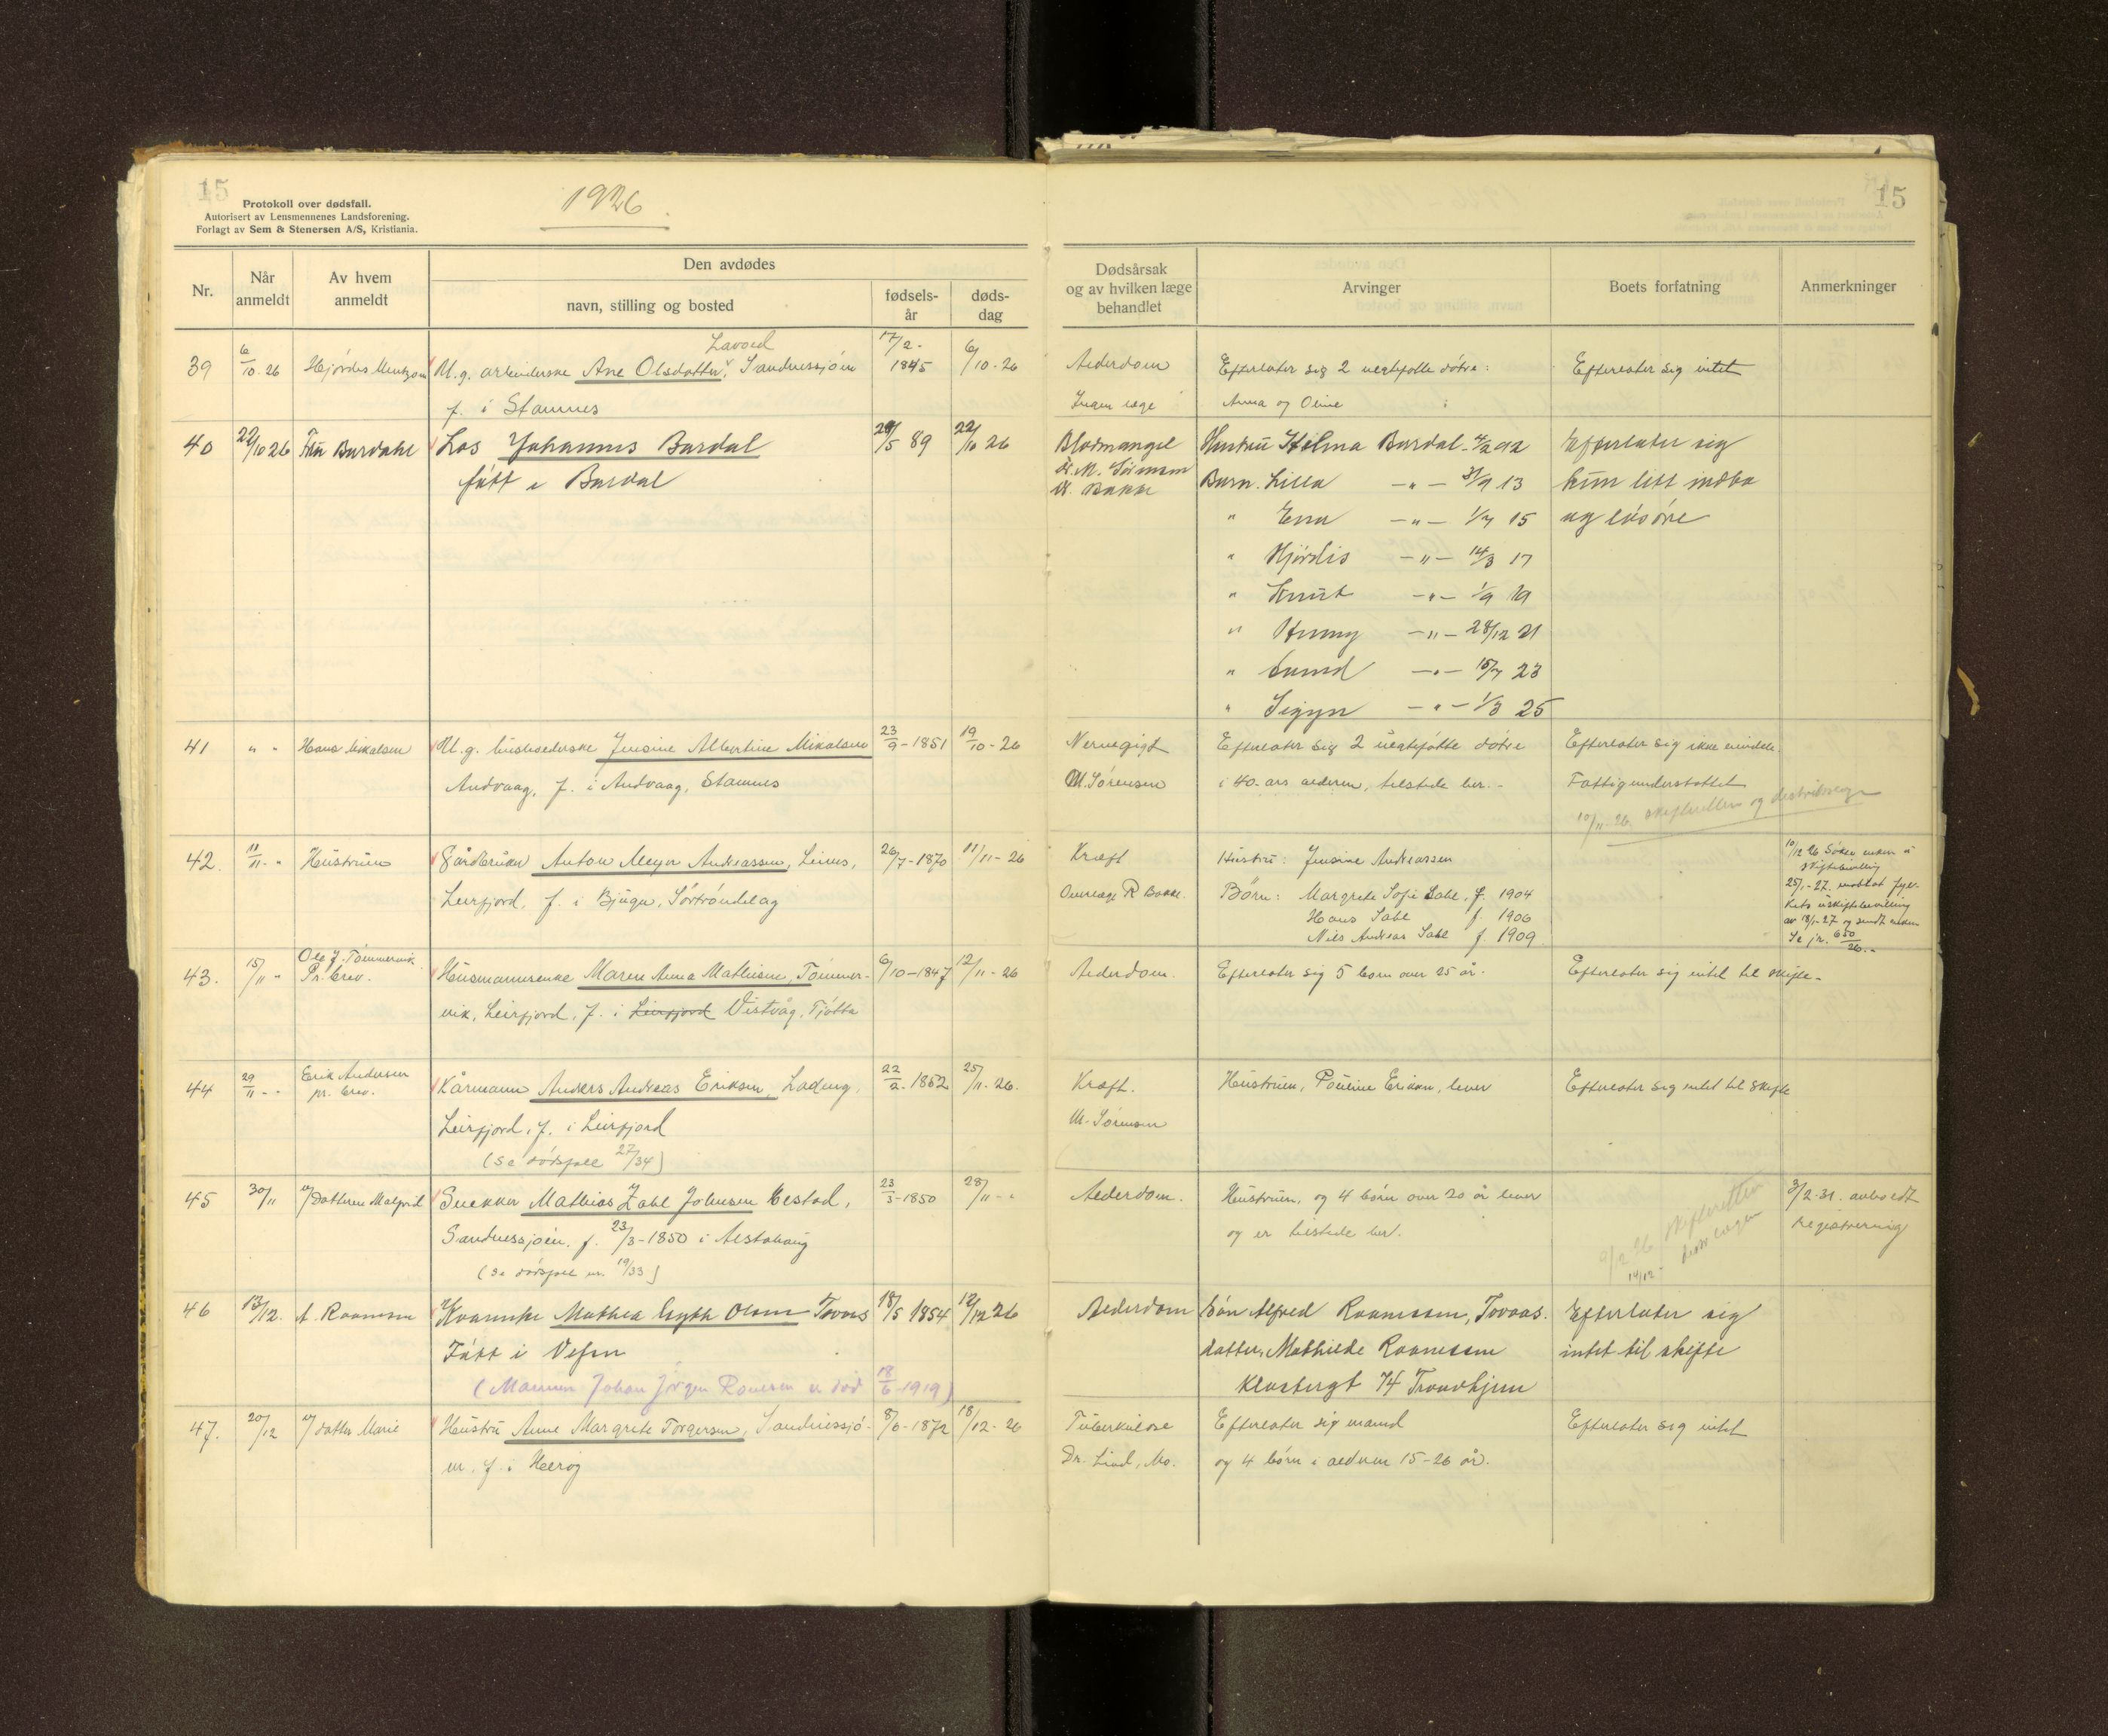 15
Protokoll over dødsfall.
Autorisert av Lensmennenes Landsforening.
Forlagt av Sem & Stenersen A/S, Kristiania.
1926
15
Nr.
Når anmeldt
Av hvem anmeldt
Den avdødes
navn, stilling og bosted
fødsels-år
døds-dag
Dødsårsak og av hvilken læge behandlet
Arvinger
Boets forfatning
Anmerkninger
39 6/10-26 Hjørdis U.g. arbeiderske Ane Olsdatter, Sandnessjøen 17/2-1845 6/10-26 Alderdom Efterlater sig 2 uegtefødte døtre: Efterlater sig intet
f. i Stamnes Ingen læge Anna og Oline
40 22/10 26 Fru Bardahl Los Johannes Bardal 29/5 89 22/10 26 Blodmangel Hustru Hilma Bardal 4/2 92 Efterlater sig
født i Bardal Dr. M. Sørensen Barn. Lilla -"- 31/9 13 kun litt indbo
Dr. Bakke " Erna -"- 1/7 15 og løsøre
" Hjørdis -"- 14/3 17
" Knut -"- 1/9 19
" Henny -"- 28/12 21
" -"- 15/7 23
" Sigyn -"- 1/3 25
41 " " Hans Mikalsen U.g. husholderske Jensine Albertine Mikalsen 23/9-1851 19/10-26 Nervegigt Efterlater sig 2 uegtefødte døtre Efterlater sig ikke eiendele.
Andvaag, f. i Andvaag, Stamnes M. Sørensen i 40-års alderen, tilstede her.- Fattigunderstøttet
10/11-26. skifteretten og
42. 11/11-" Hustruen Gårdbruker Anton Meyer Andreassen, Leines, 26/7-1870 11/11-26 Kræft Hustru: Jensine Andreassen
Leirfjord, f. i Bjugn, Sørtrøndelag Overlæge R Bakke. Børn: Margrete Sofie Dahl, f. 1904
Hans Dahl f. 1906
Nils Andreas Dahl f. 1909
10/12 26 Søker enken u
skiftebevilling
25/1-27. mottat fyl-
kets uskiftebevilling
av 18/1-27 og sendt enken
Se jr. 650/26.-
43. 15/11 " Ole J. Tømmervik Pr. brev. Husmannsenke Maren Anna Mathisen, Tømmer- 6/10-1847 12/11-26 Alderdom. Efterlater sig 5 barn over 25 år. Efterlater sig intet til skifte-
vik, Leirfjord, f. i Leirfjord Vistvåg, Tjøtta
44 29/11-" Erik Andersen pr. brev. Kårmann Anders Andreas Eriksen, 22/2-1852 25/11-26. Kræft. Hustruen, Pauline Eriksen, lever Efterlater sig intet til skifte
Leirfjord, f. i Leirfjord M. Sørensen
(Se dødsfall 27/34)
45 30/11 v/ Datteren Malfrid Snekker Mathias Zahl Johnsen 23/3-1850 28/11-" Alderdom. Hustruen, og 4 børn over 20 år lever 3/2-31. avholdt
Sandnessjøen. f. 23/3-1850 i Alstahaug og er tilstede her. registrering
(Se dødsfall nr. 19/33)
46 13/12. A. Roaenssen Mathea Olsen Tovaas 18/5 1854 12/12 26 Alderdom Søn Alfred Roaenssen, Tovaas. Efterlater sig
Født i Vefsn datter, Mathilde Roaenssen intet til skifte
(Mannen Johan Jørgen død 18/6-1919) Klostergt 74 Trondhjem
47. 20/12 v/ datter Marie Hustru Anne Margrete Torgersen, Sandnessjø- 8/6-1872 18/12-26 Tuberkulose Efterlater sig mand Efterlater sig intet
en, f. i Herøy Dr. Lind, Mo. og 4 børn i alderen 15-26 år.